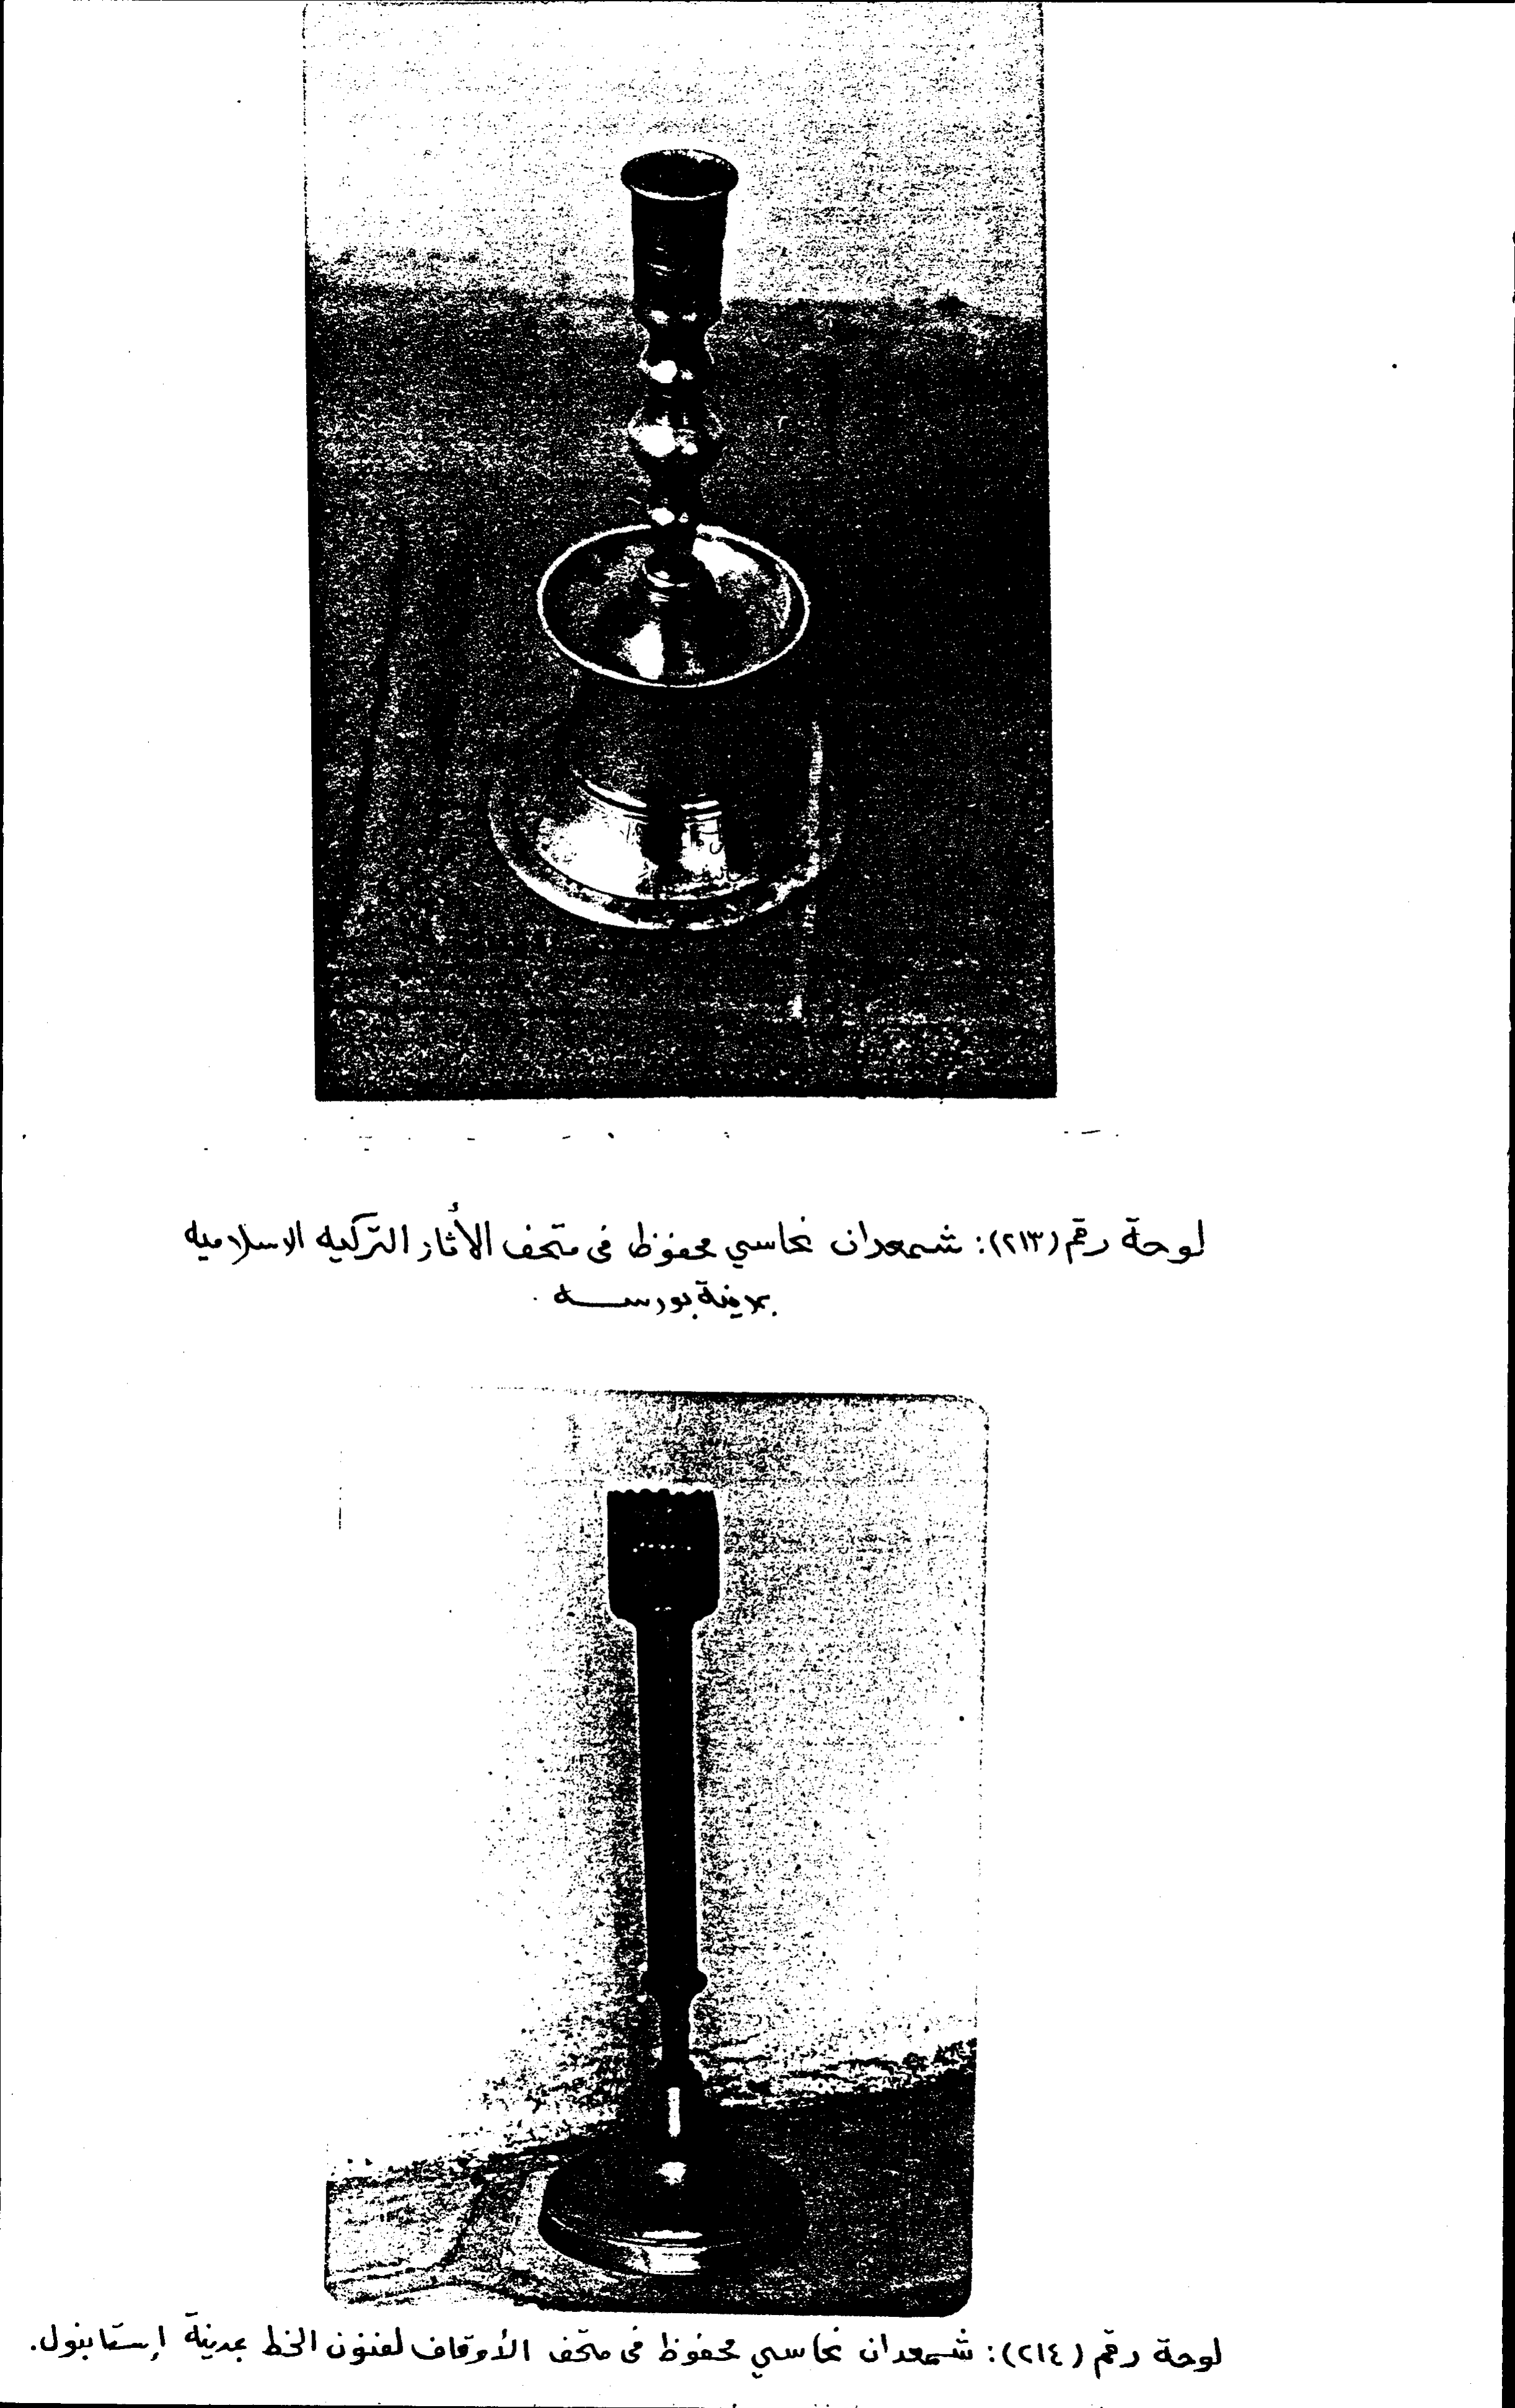 لوحة رقم (٢١٣): شمعدان نحاسي محفوظ فى متحف الأثار التركيه الاسلاميه
بمدينة بورسه .
لوحة رقم (٢١٤): شمعدان نحاسي محفوظ فى متحف الأوقاف لفنون الخط بمدينة إستانبول.